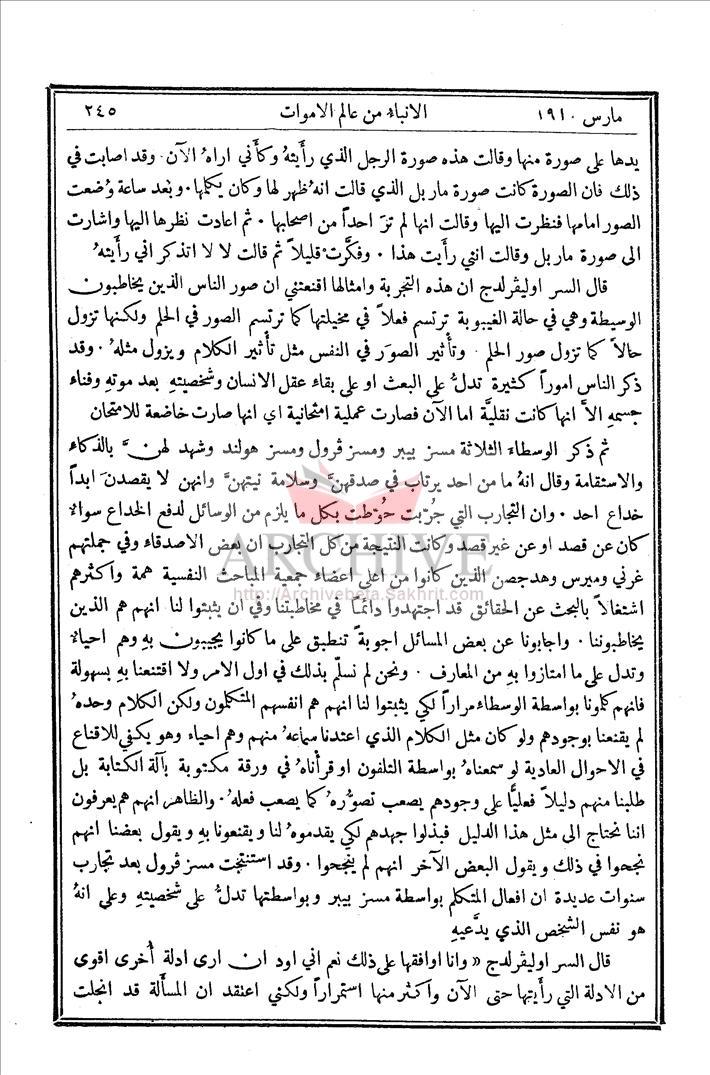 مارس ١٩١٠
الانباء من عالم الاموات
٢٤٥
يدها على صورة منها وقالت هذه صورة الرجل الذي رأيتهُ وكأني اراهُ الآن ۰ وقد اصابت في
ذلك فان الصورة كانت صورة ماربل الذي قالت انهُ ظهر لها وكان يكلمها ۰ وبعد ساعة وُضعت
الصور امامها فنظرت اليها وقالت انها لم ترَ احداً من اصحابها ۰ ثم اعادت نظرها اليها واشارت
الى صورة ماربل وقالت انني رأيت هذا ۰ وفكَّرت قليلاً ثم قالت لا لا اتذكر اني رأيتهُ
قال السر اوليڤرلدج ان هذه التجربة وامثالها اقنعتني ان صور الناس الذين يخاطبون
الوسيطة وهي في حالة الغيبوبة ترتسم فعلاً في مخيلتها كما ترتسم الصور في الحلم ولكنها تزول
حالاً كما تزول صور الحلم ۰ وتأثير الصوَر في النفس مثل تأثير الكلام ويزول مثلهُ ۰ وقد
ذكر الناس اموراً كثيرة تدلُّ على البعث او على بقاء عقل الانسان وشخصيتهِ بعد موتهِ وفناء
جسمهِ الاَّ انها كانت نقليَّة اما الآن فصارت عملية امتحانية اي انها صارت خاضعة للامتحان
ثم ذكر الوسطاء الثلاثة مسز ييبر ومسز ڤرول ومسز هولند وشهد لهنَّ بالذكاء
والاستقامة وقال انهُ ما من احد يرتاب في صدقهنَّ وسلامة نيتهنَّ وانهن لا يقصدنَ ابداً
خداع احد ۰ وان التجارب التي جُرّبت حُوّطت بكل ما يلزم من الوسائل لدفع الخداع سوالا
كان عن قصد او عن غير قصد وكانت النتيجة من كل التجارب ان بعض الاصدقاء وفي جملتهم
غرني وميرس وهدجصن الذين كانوا من اعلى اعضاء جمعية المباحث النفسية همة واكثرهم
اشتغالاً بالبحث عن الحقائق قد اجتهدوا دائماً في مخاطبتنا وفي ان يثبتوا لنا انهم هم الذين
يخاطبوننا ۰ واجابونا عن بعض المسائل اجوبةً تنطبق على ما كانوا يجيبون بهِ وهم احياء
وتدل على ما امتازوا بهِ من المعارف ۰ ونحن لم نسلّم بذلك في اول الامر ولا اقتنعنا بهِ بسهولة
فانهم كلمونا بواسطة الوسطاء مراراً لكي يثبتوا لنا انهم هم انفسهم المتكلمون ولكن الكلام وحدهُ
لم يقنعنا بوجودهم ولو كان مثل الكلام الذي اعتدنا سماعهُ منهم وهم احياء وهو يكفي للاقناع
في الاحوال العادية لو سمعناهُ بواسطة التلفون او قرأناهُ في ورقة مكتوبة بآلة الكتابة بل
طلبنا منهم دليلاً فعليًّا على وجودهم يصعب تصوُّرهُ كما يصعب فعلهُ ۰ والظاهر انهم هم يعرفون
اننا نحتاج الى مثل هذا الدليل فبذلوا جهدهم لكي يقدموهُ لنا ويقنعونا بهِ ويقول بعضنا انهم
نجحوا في ذلك ويقول البعض الآخر انهم لم ينجحوا ۰ وقد استنتجت مسز ڤرول بعد تجارب
سنوات عديدة ان افعال المتكلم بواسطة مسز ييبر وبواسطتها تدلُّ على شخصيتهِ وعلى انهُ
هو نفس الشخص الذي يدَّعيهِ
قال السر اوليڤرلدج « وانا اوافقها على ذلك نعم اني اود ان ارى ادلة أُخرى اقوى
من الادلة التي رأيتها حتى الآن واكثر منها استمراراً ولكني اعتقد ان المسألة قد انجلت
ARCHIVE
http://Archivebeta.Sakhrit.com